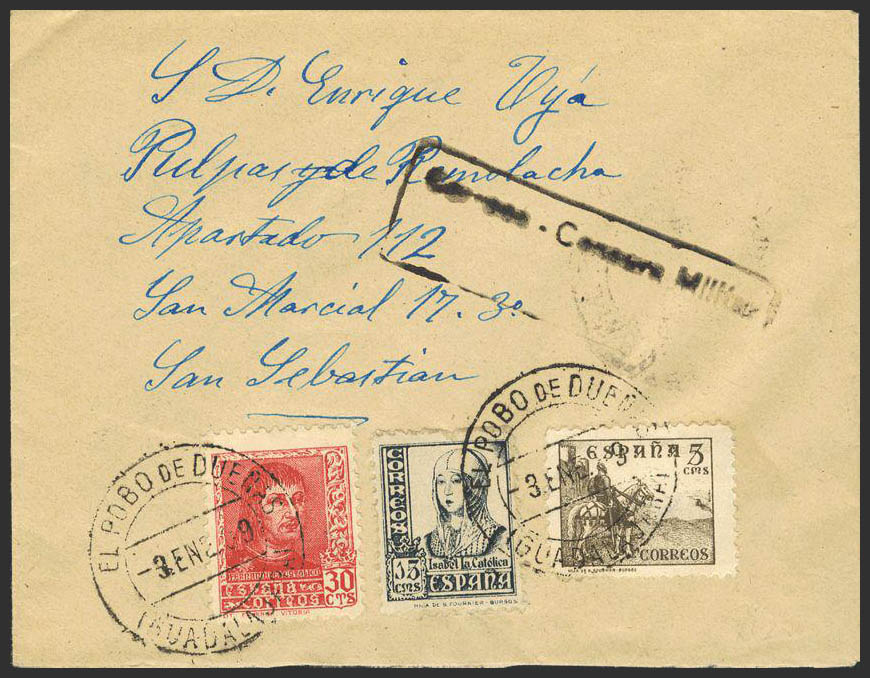 S D. Enrique Uyá
Pulpas de Remolacha
Apartado 112
San Marcial 17. 3º
San Sebastian
Censura Militar
EL POBO DE DUEÑAS
-3.ENE 39
(GUADALAJARA)
FERNANDO EL CATOLICO
ESPAÑA
CORREOS
30
CTS
CORREOS
15
CMS
Isabel la Católica
ESPAÑA
HIJA DE B. FOURNIER-BURGOS
EL POBO DE DUEÑAS
-3.ENE 39
(GUADALAJARA)
ESPAÑA 5
CMS
CORREOS
HIJA DE B. FOURNIER-BURGOS